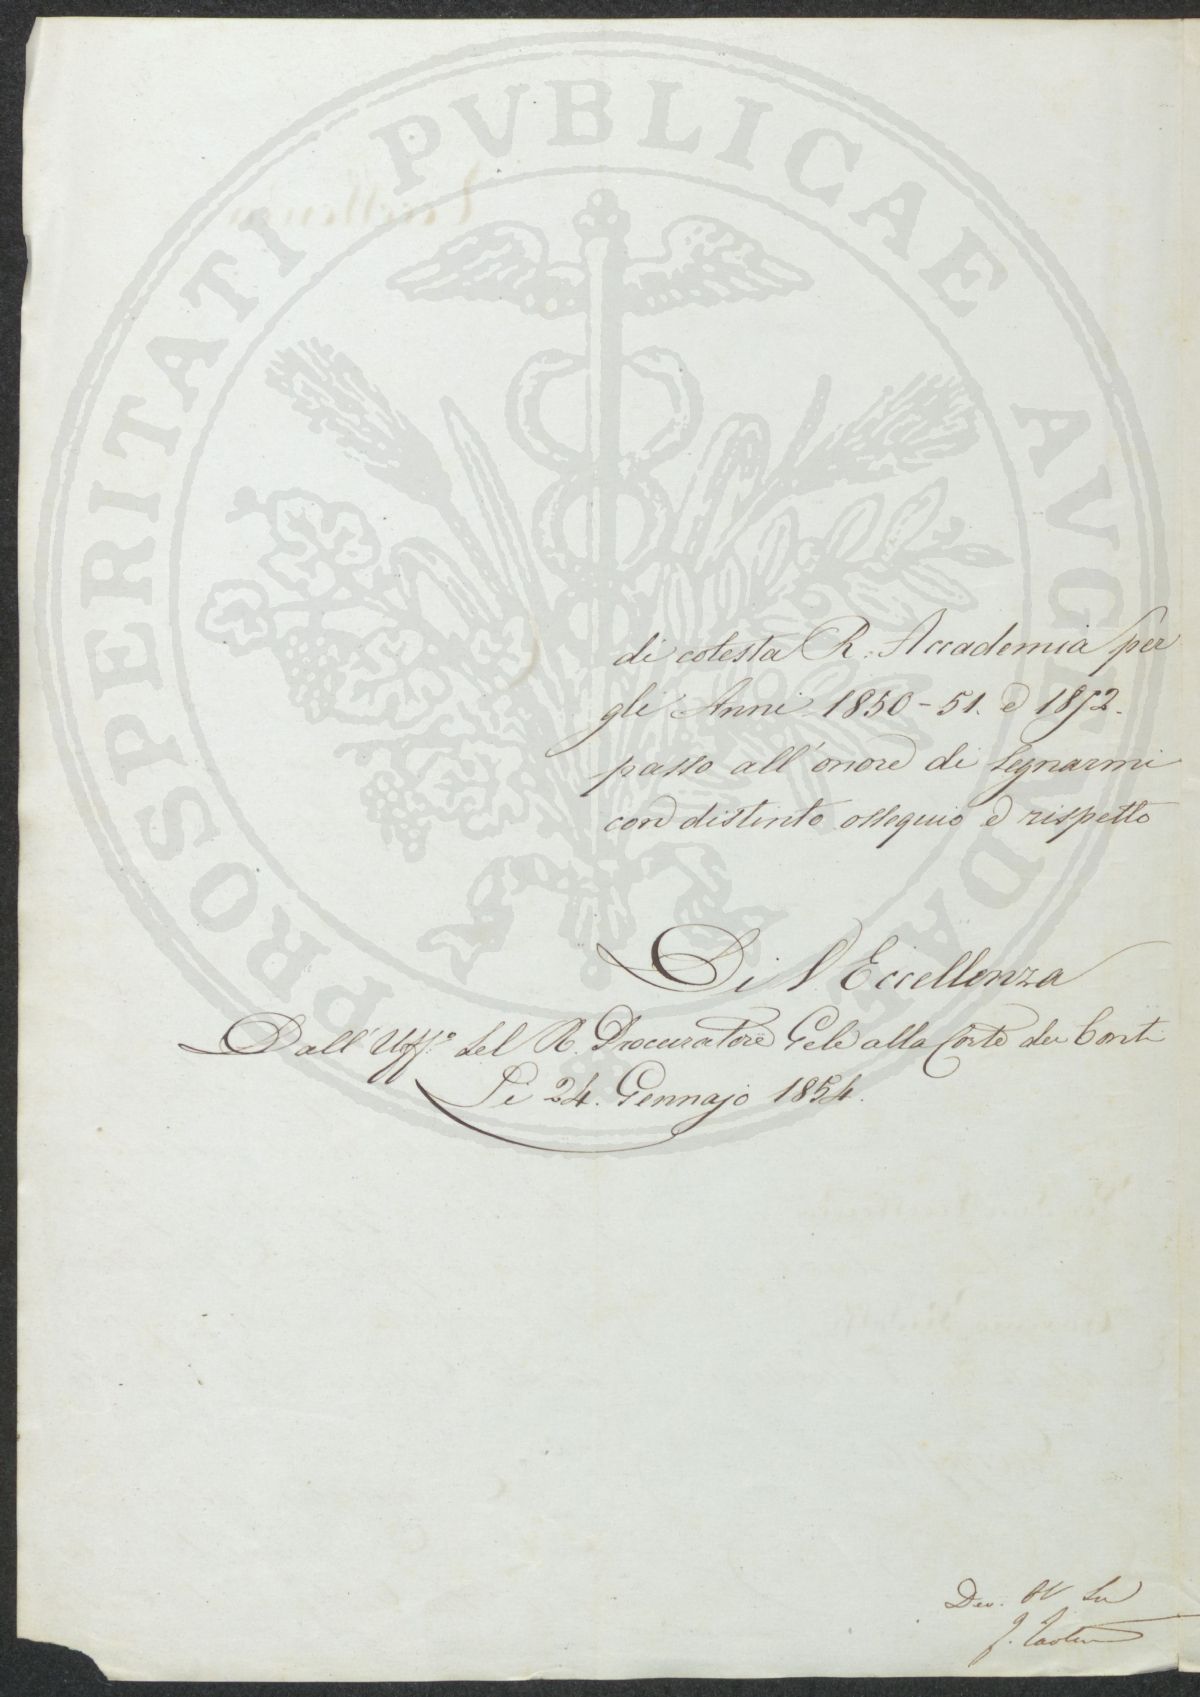 PROSPERITATI PVBLICAE AVGENDAE
di cotesta R. Accademia per
gli Anni 1850-51. e 1852.
passo all'onore di segnarmi
con distinto ossequio e rispetto
Di V. Eccellenza
Dall'Uff.o del R. Procuratore Gele alla Corte dei Conti
Li 24. Gennajo 1854.
Dev.